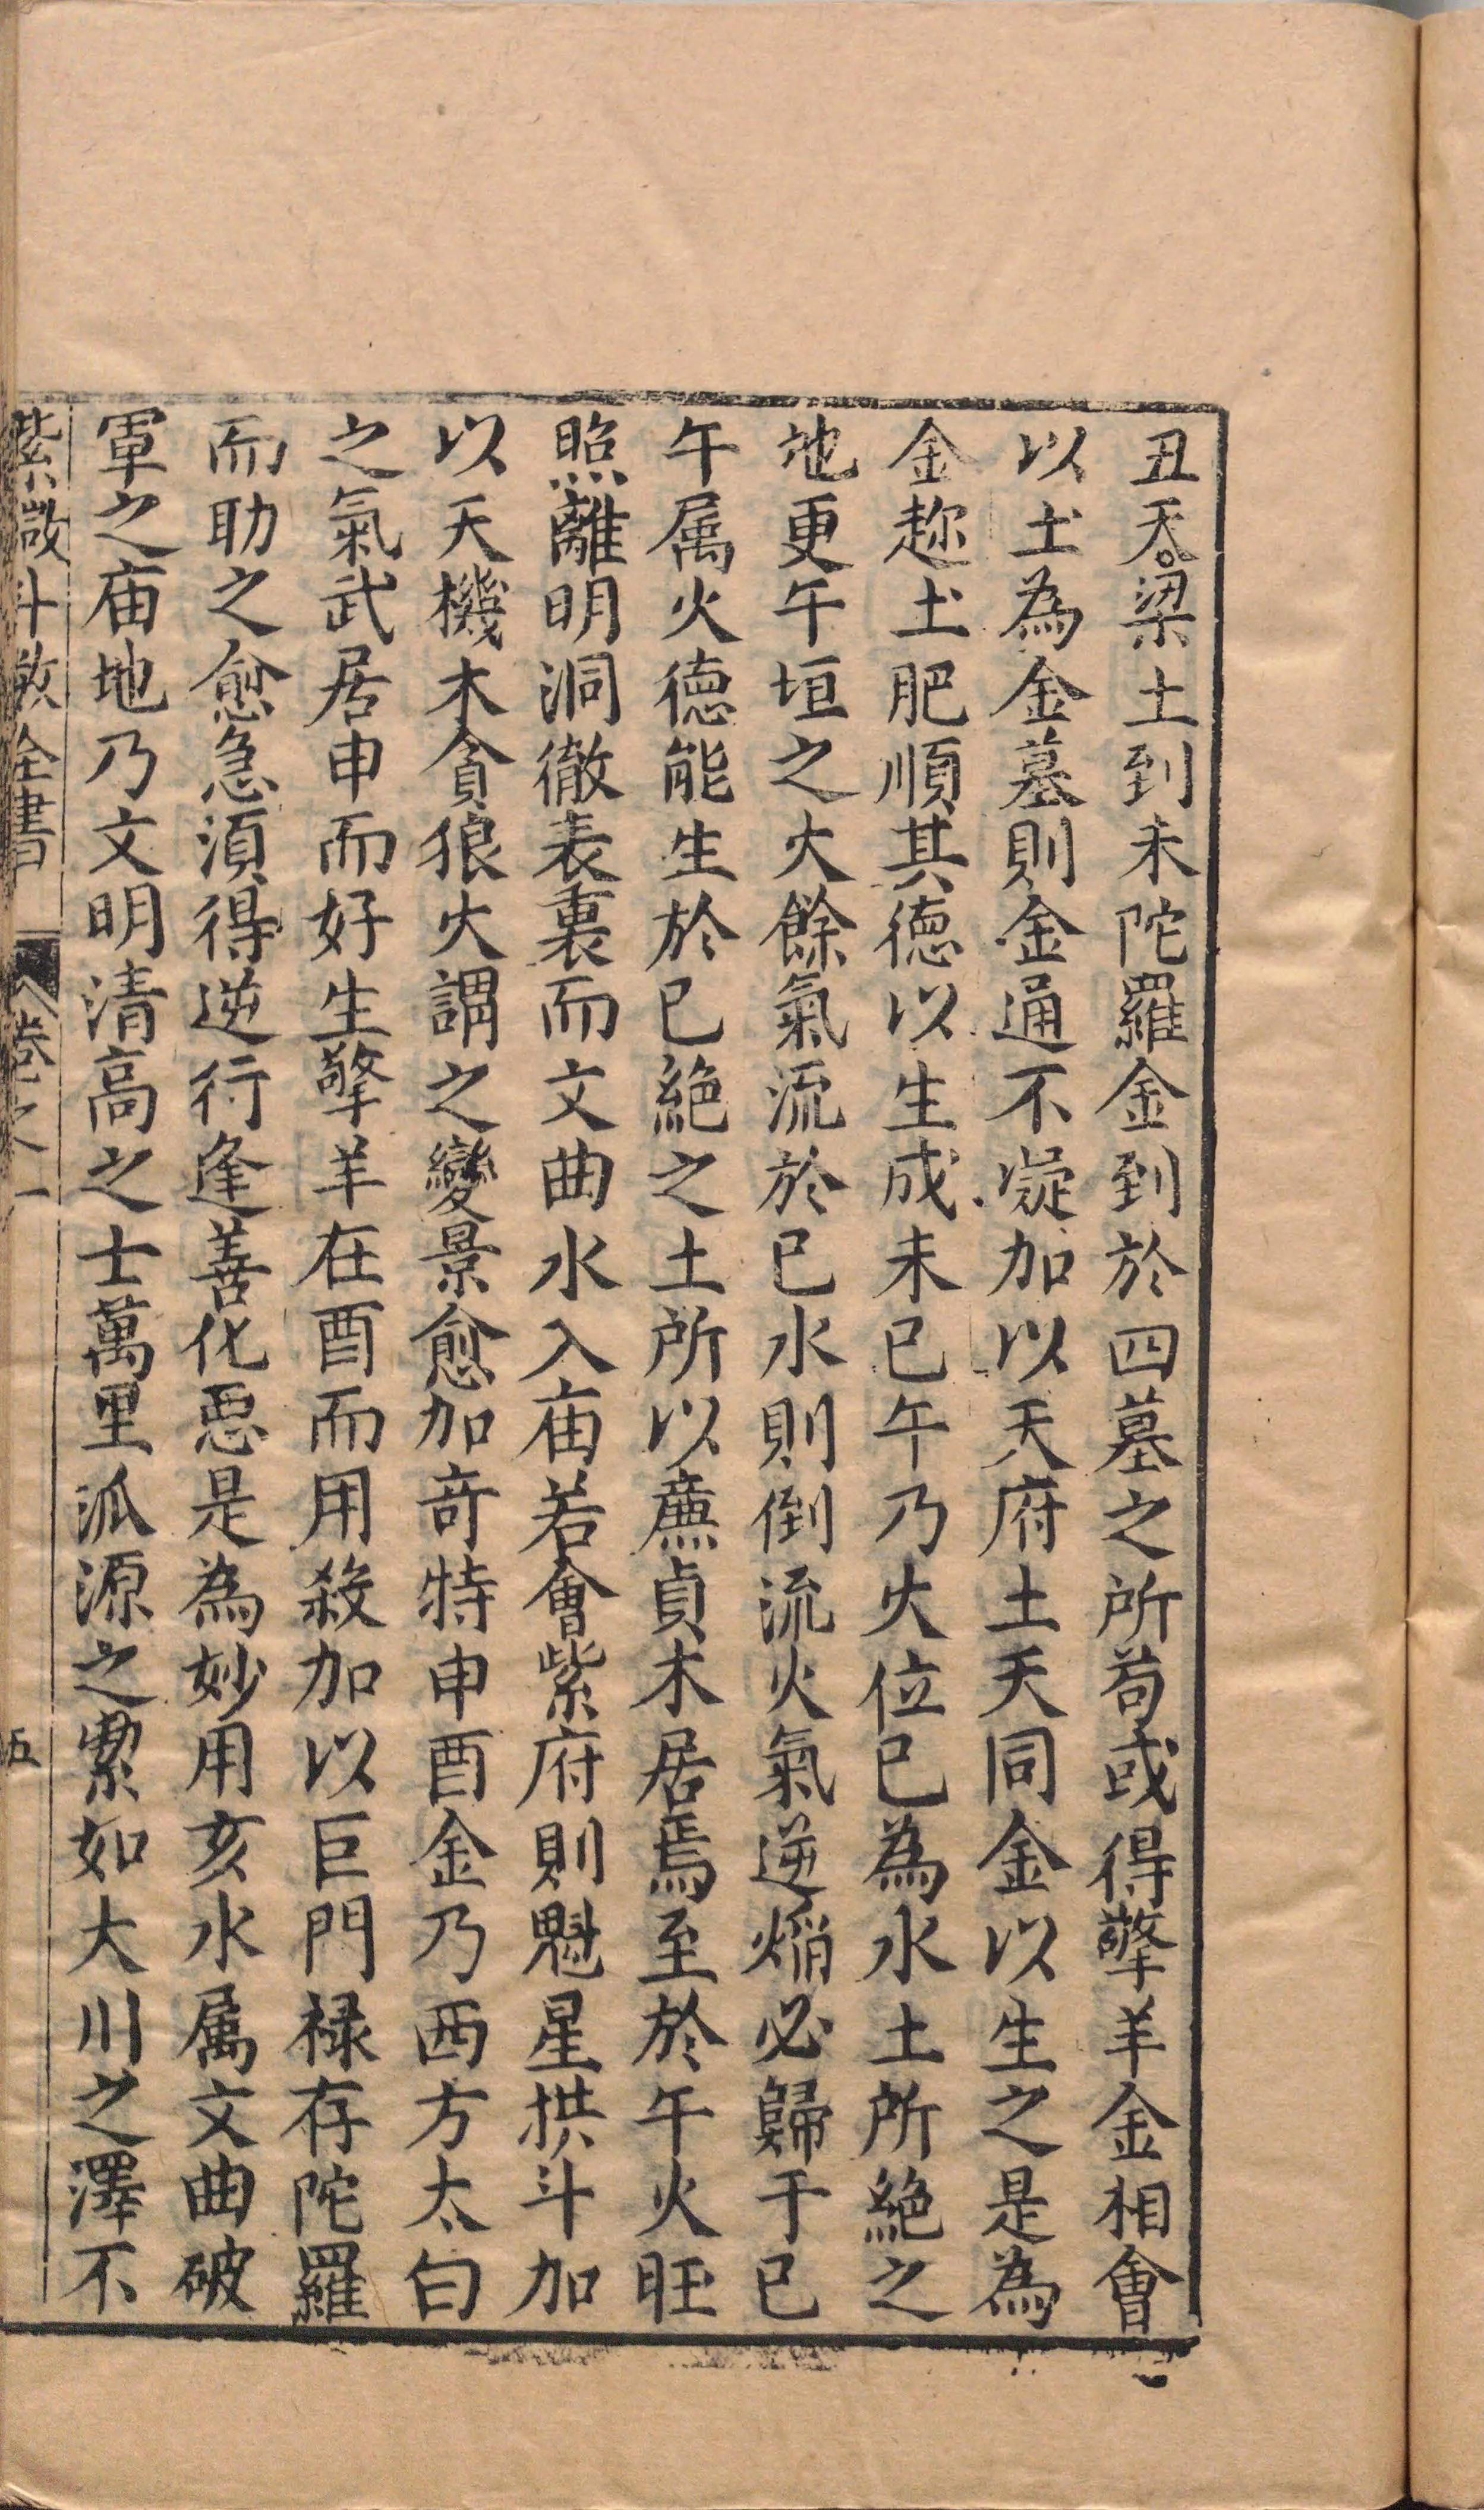 丑天梁土到未陀羅金到於四墓之所苟或得擎羊金相會
以土為金墓則金通不凝加以天府土天同金以生之是為
金趂土肥順其德以生成未巳午乃火位巳為水土所絶之
地更午垣之火餘氣流於巳水則倒流火氣逆焰必歸于巳
午属火德能生於巳絶之土所以廉貞木居焉至於午火旺
照離明洞徹表裏而文曲水入庙若會紫府則魁星拱斗加
以天機木貪狼火謂之變景愈加竒特申酉金乃西方太白
之氣武居申而好生擎羊在酉而用殺加以巨門禄存陀羅
而助之愈急須得逆行逢善化惡是為妙用亥水属文曲破
軍之庙地乃文明清高之士萬里派源之潔如大川之澤不
紫微斗数全書 卷之一 五